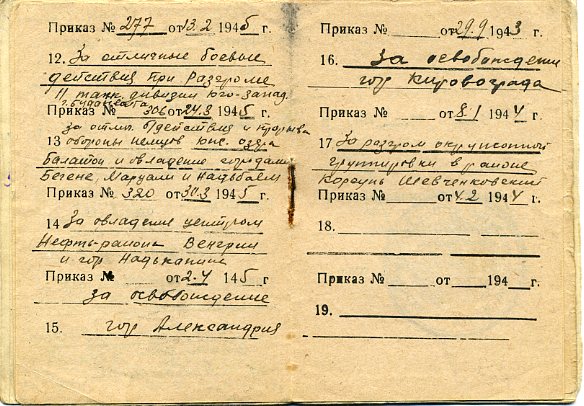 Приказ № 277 от 13.2 1945 г.
12. За отличные боевые
действия при разгроме
11 танк. дивизии юго-запад.
г. Будапешта
Приказ № 306 от 24.3 1945 г.
за отлич. б/действия и прорыва
13 обороны немцев юж. озера
Балатон и овладение городами
Бегене, Марцали и Надьбайом
Приказ № 320 от 30.3 1945 г.
14 За овладение центром
Нефть-района Венгрии
и гор Надьканижа
Приказ № от 2.4 1945 г.
за освобождение
15. гор Александрия
Приказ № от 29.9 1943 г.
16. За освобождение
гор Кировограда
Приказ № от 8.1 1944 г.
17 За разгром окруженной
группировки в районе
Корсунь Шевченковский
Приказ № от 1944 г.
18.
Приказ № от 194 г.
19.